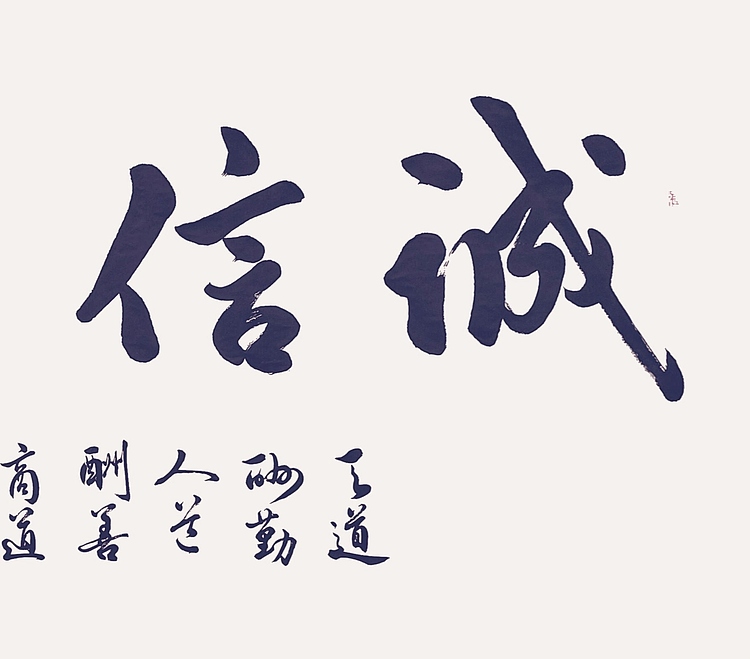 诚信
天道
酬勤
人道
酬善
商道